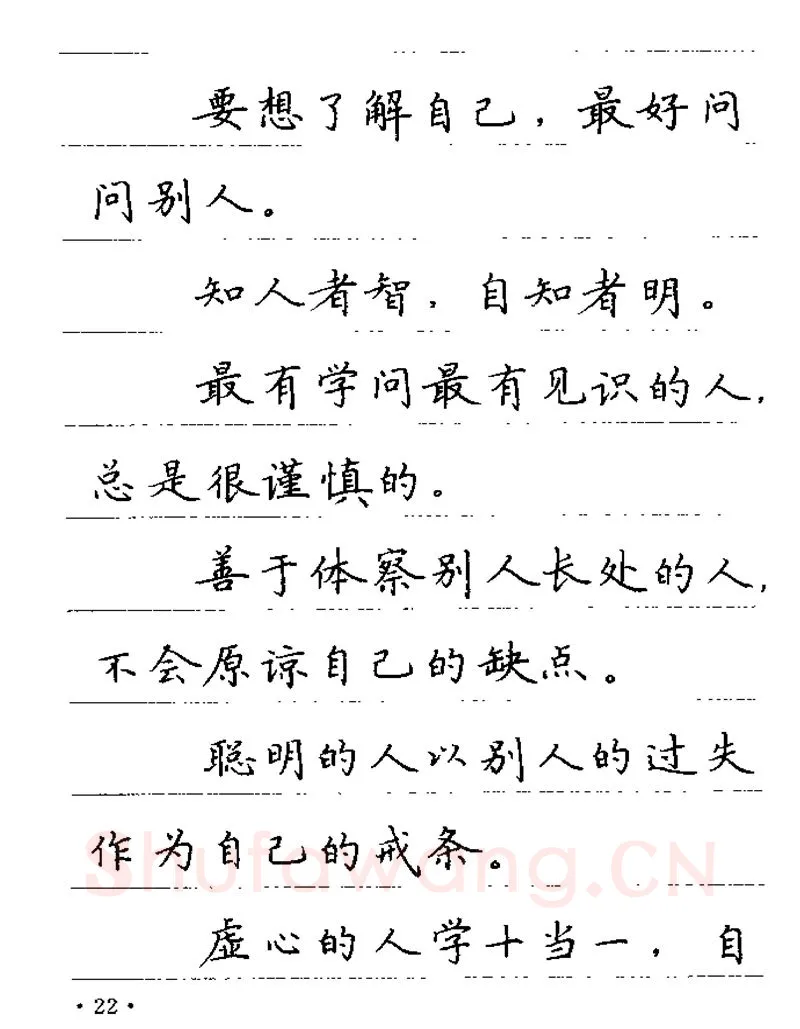 要想了解自己，最好问
问别人。
知人者智，自知者明。
最有学问最有见识的人，
总是很谨慎的。
善于体察别人长处的人，
不会原谅自己的缺点。
聪明的人以别人的过失
作为自己的戒条。
Shufawang.CN
虚心的人学十当一，自
·22·